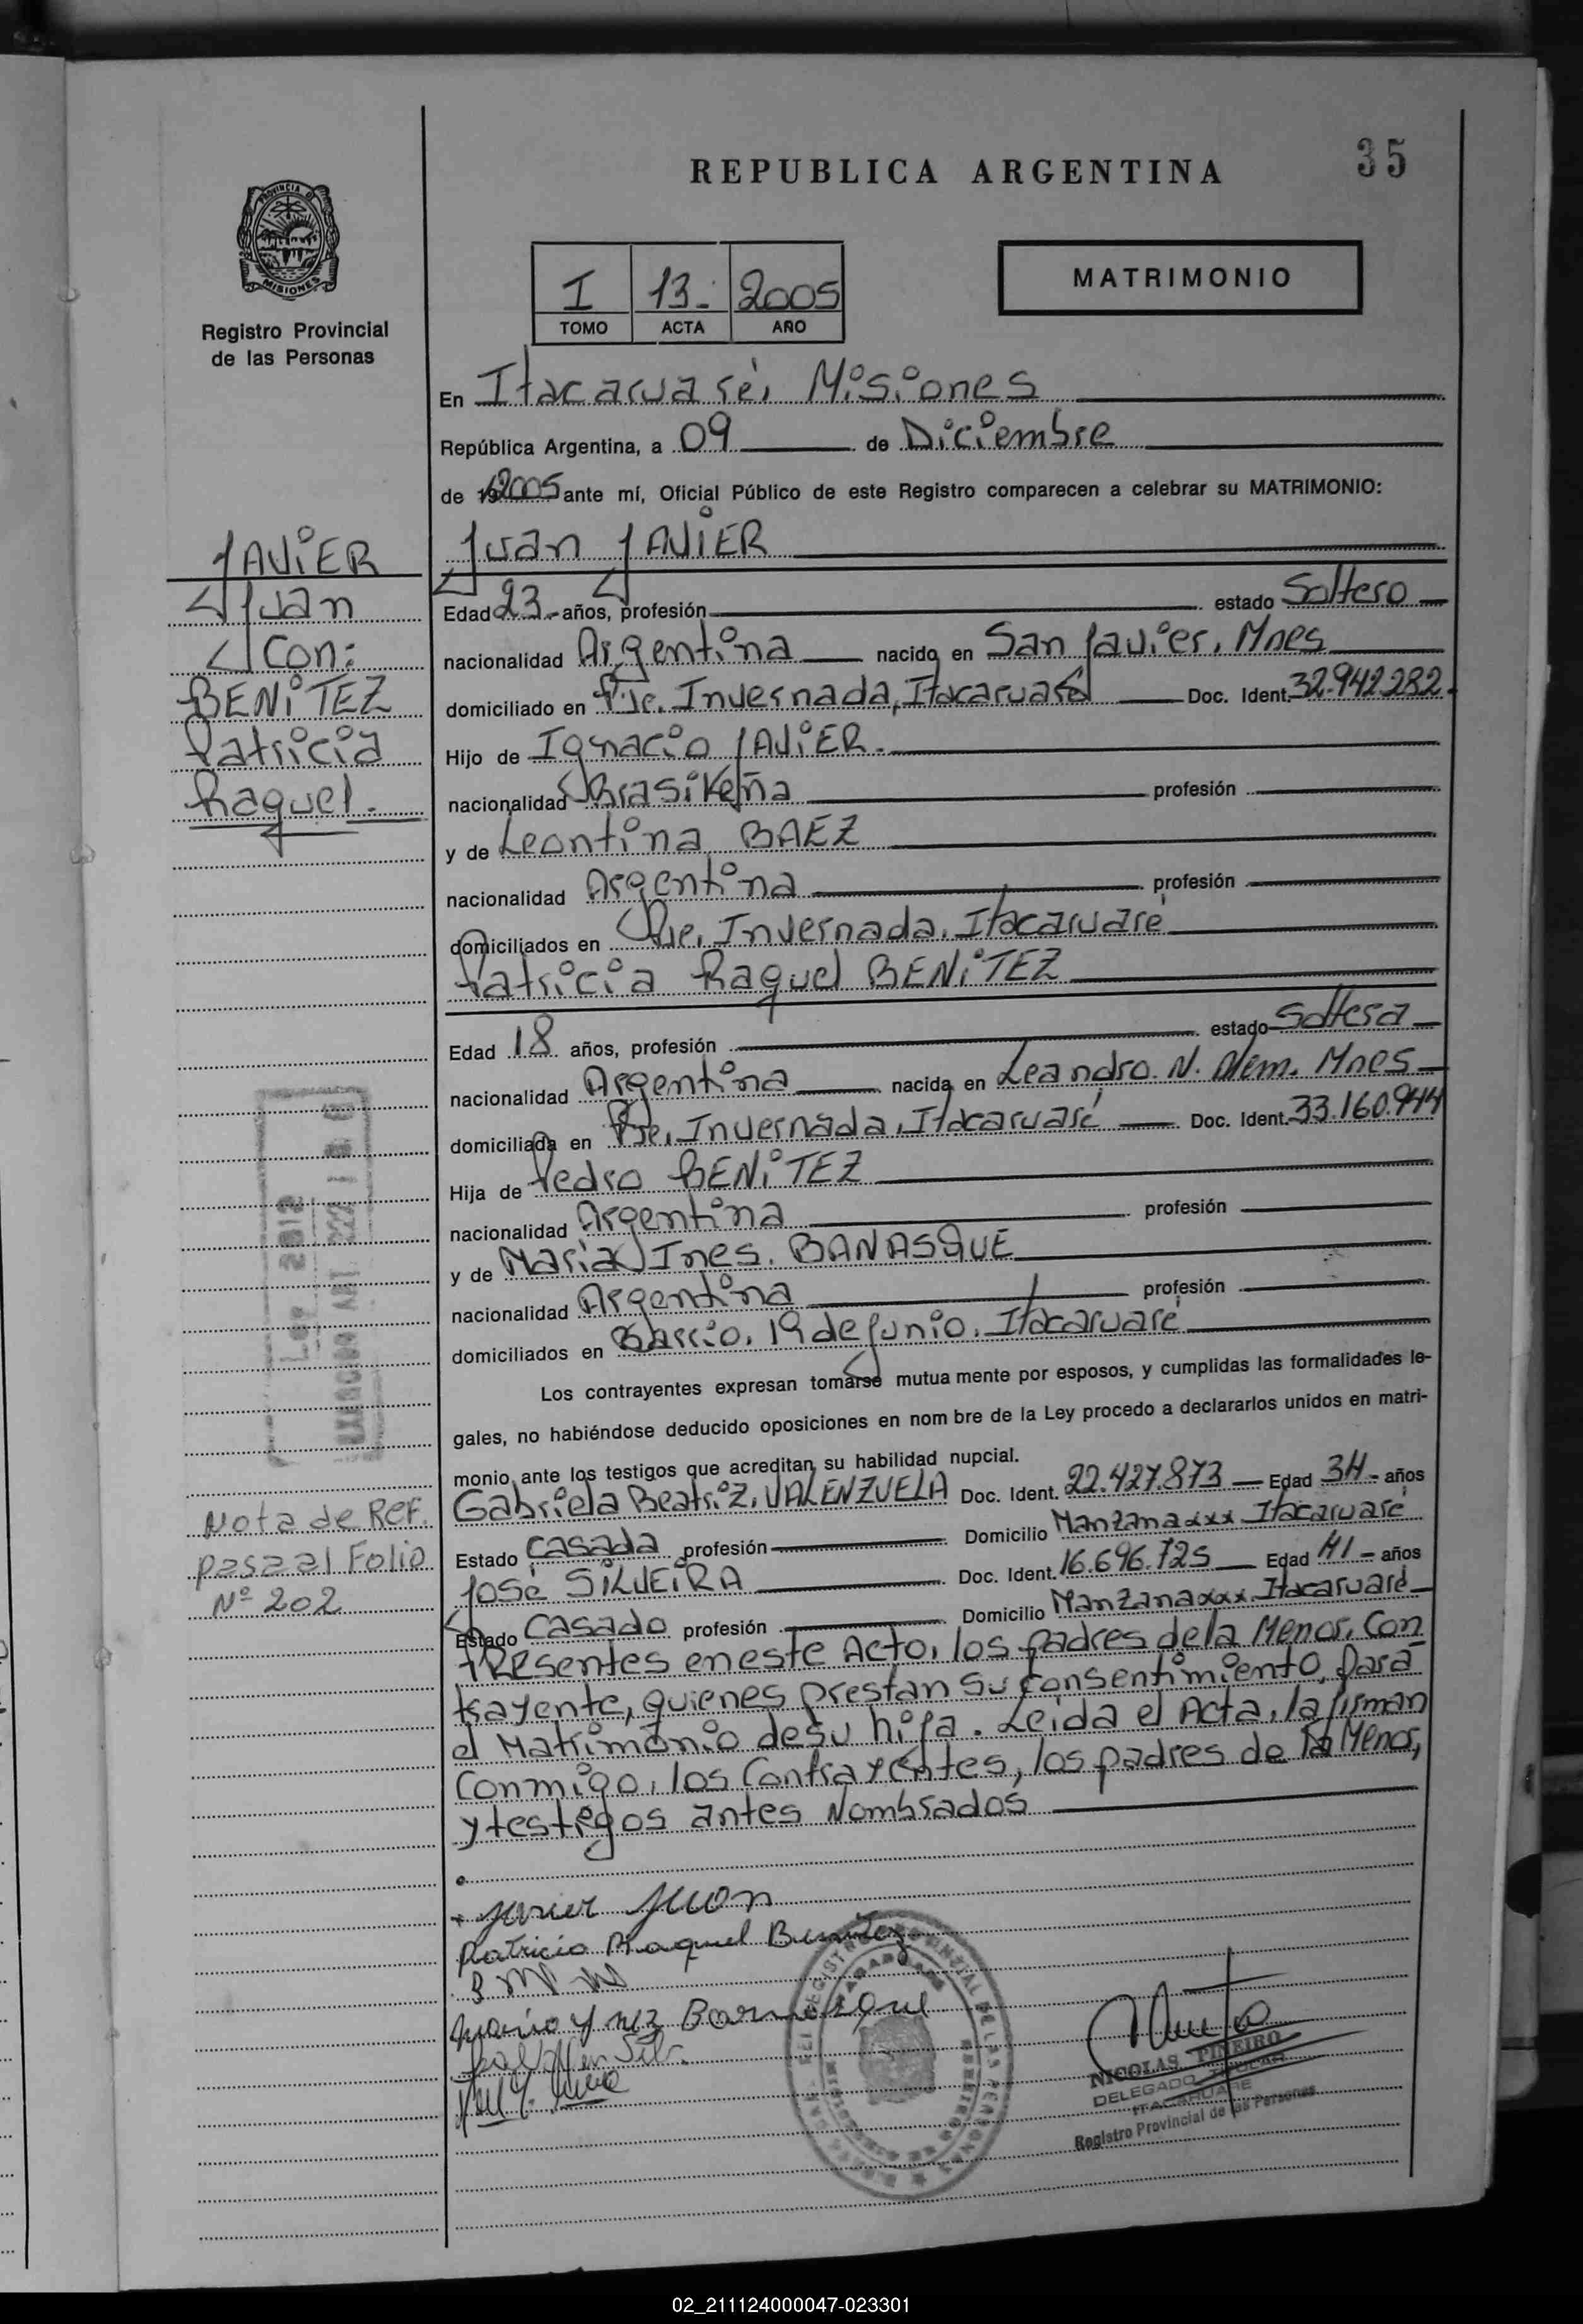 35
REPUBLICA ARGENTINA
PROVINCIA DE
MISIONES
Registro Provincial
de las Personas
I 13- 2005
TOMO ACTA AÑO
MATRIMONIO
En Itacaruaré, Misiones
República Argentina, a 09 de Diciembre
de 2005 ante mí, Oficial Público de este Registro comparecen a celebrar su MATRIMONIO:
JAViER
Juan
Con:
BENiTEZ
Patricia
Raquel.-
Juan JAViER
Edad 23- años, profesión estado Soltero
nacionalidad Argentina nacido en San Javier, Mnes
domiciliado en Pje. Invernada, Itacaruaré Doc. Ident. 32.942.282.
Hijo de Ignacio JAViER.
nacionalidad Brasileña profesión
y de Leontina BAEZ
nacionalidad Argentina profesión
domiciliados en Pje. Invernada, Itacaruaré
Patricia Raquel BENiTEZ
Edad 18 años, profesión estado Soltera
nacionalidad Argentina nacida en Leandro. N. Alem. Mnes
domiciliada en Pje. Invernada, Itacaruaré Doc. Ident. 33.160.944
Hija de Pedro BENiTEZ
nacionalidad Argentina profesión
y de Maria Ines. BANASQUE
nacionalidad Argentina profesión
domiciliados en Barrio. 19 de Junio. Itacaruaré
Los contrayentes expresan tomarse mutua mente por esposos, y cumplidas las formalidades le-
gales, no habiéndose deducido oposiciones en nom bre de la Ley procedo a declararlos unidos en matri-
monio ante los testigos que acreditan su habilidad nupcial.
Gabriela Beatriz, VALENZUELA Doc. Ident. 22.427.873 Edad 34- años
Estado Casada profesión Domicilio Manzana xxx Itacaruaré
José SiLVEiRA Doc. Ident. 16.696.725 Edad 41- años
Estado Casado profesión Domicilio Manzana xxx Itacaruaré
PREsentes en este Acto, los padres de la Menor, Con
trayente, quienes prestan su Consentimiento, para
el Matrimonio de su hija. Leida el Acta, la firman
Conmigo, los Contrayentes, los padres de la Menor,
y testigos antes Nombrados
Nota de REF.
pasa al Folio
Nº 202
Javier Juan
Patricia Raquel Benitez
NICOLAS PIÑEIRO
DELEGADO TITULAR
ITACARUARE
Registro Provincial de las Personas
02_211124000047-023301